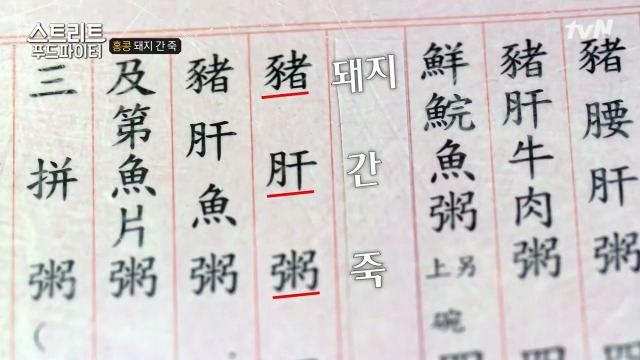 스트리트
푸드파이터
홍콩 돼지 간 죽
tvN
豬腰肝粥
豬肝牛肉粥
鮮鯇魚粥
另
上碗
돼지 간 죽
豬肝粥
豬肝魚粥
及第魚片粥
三拼粥(